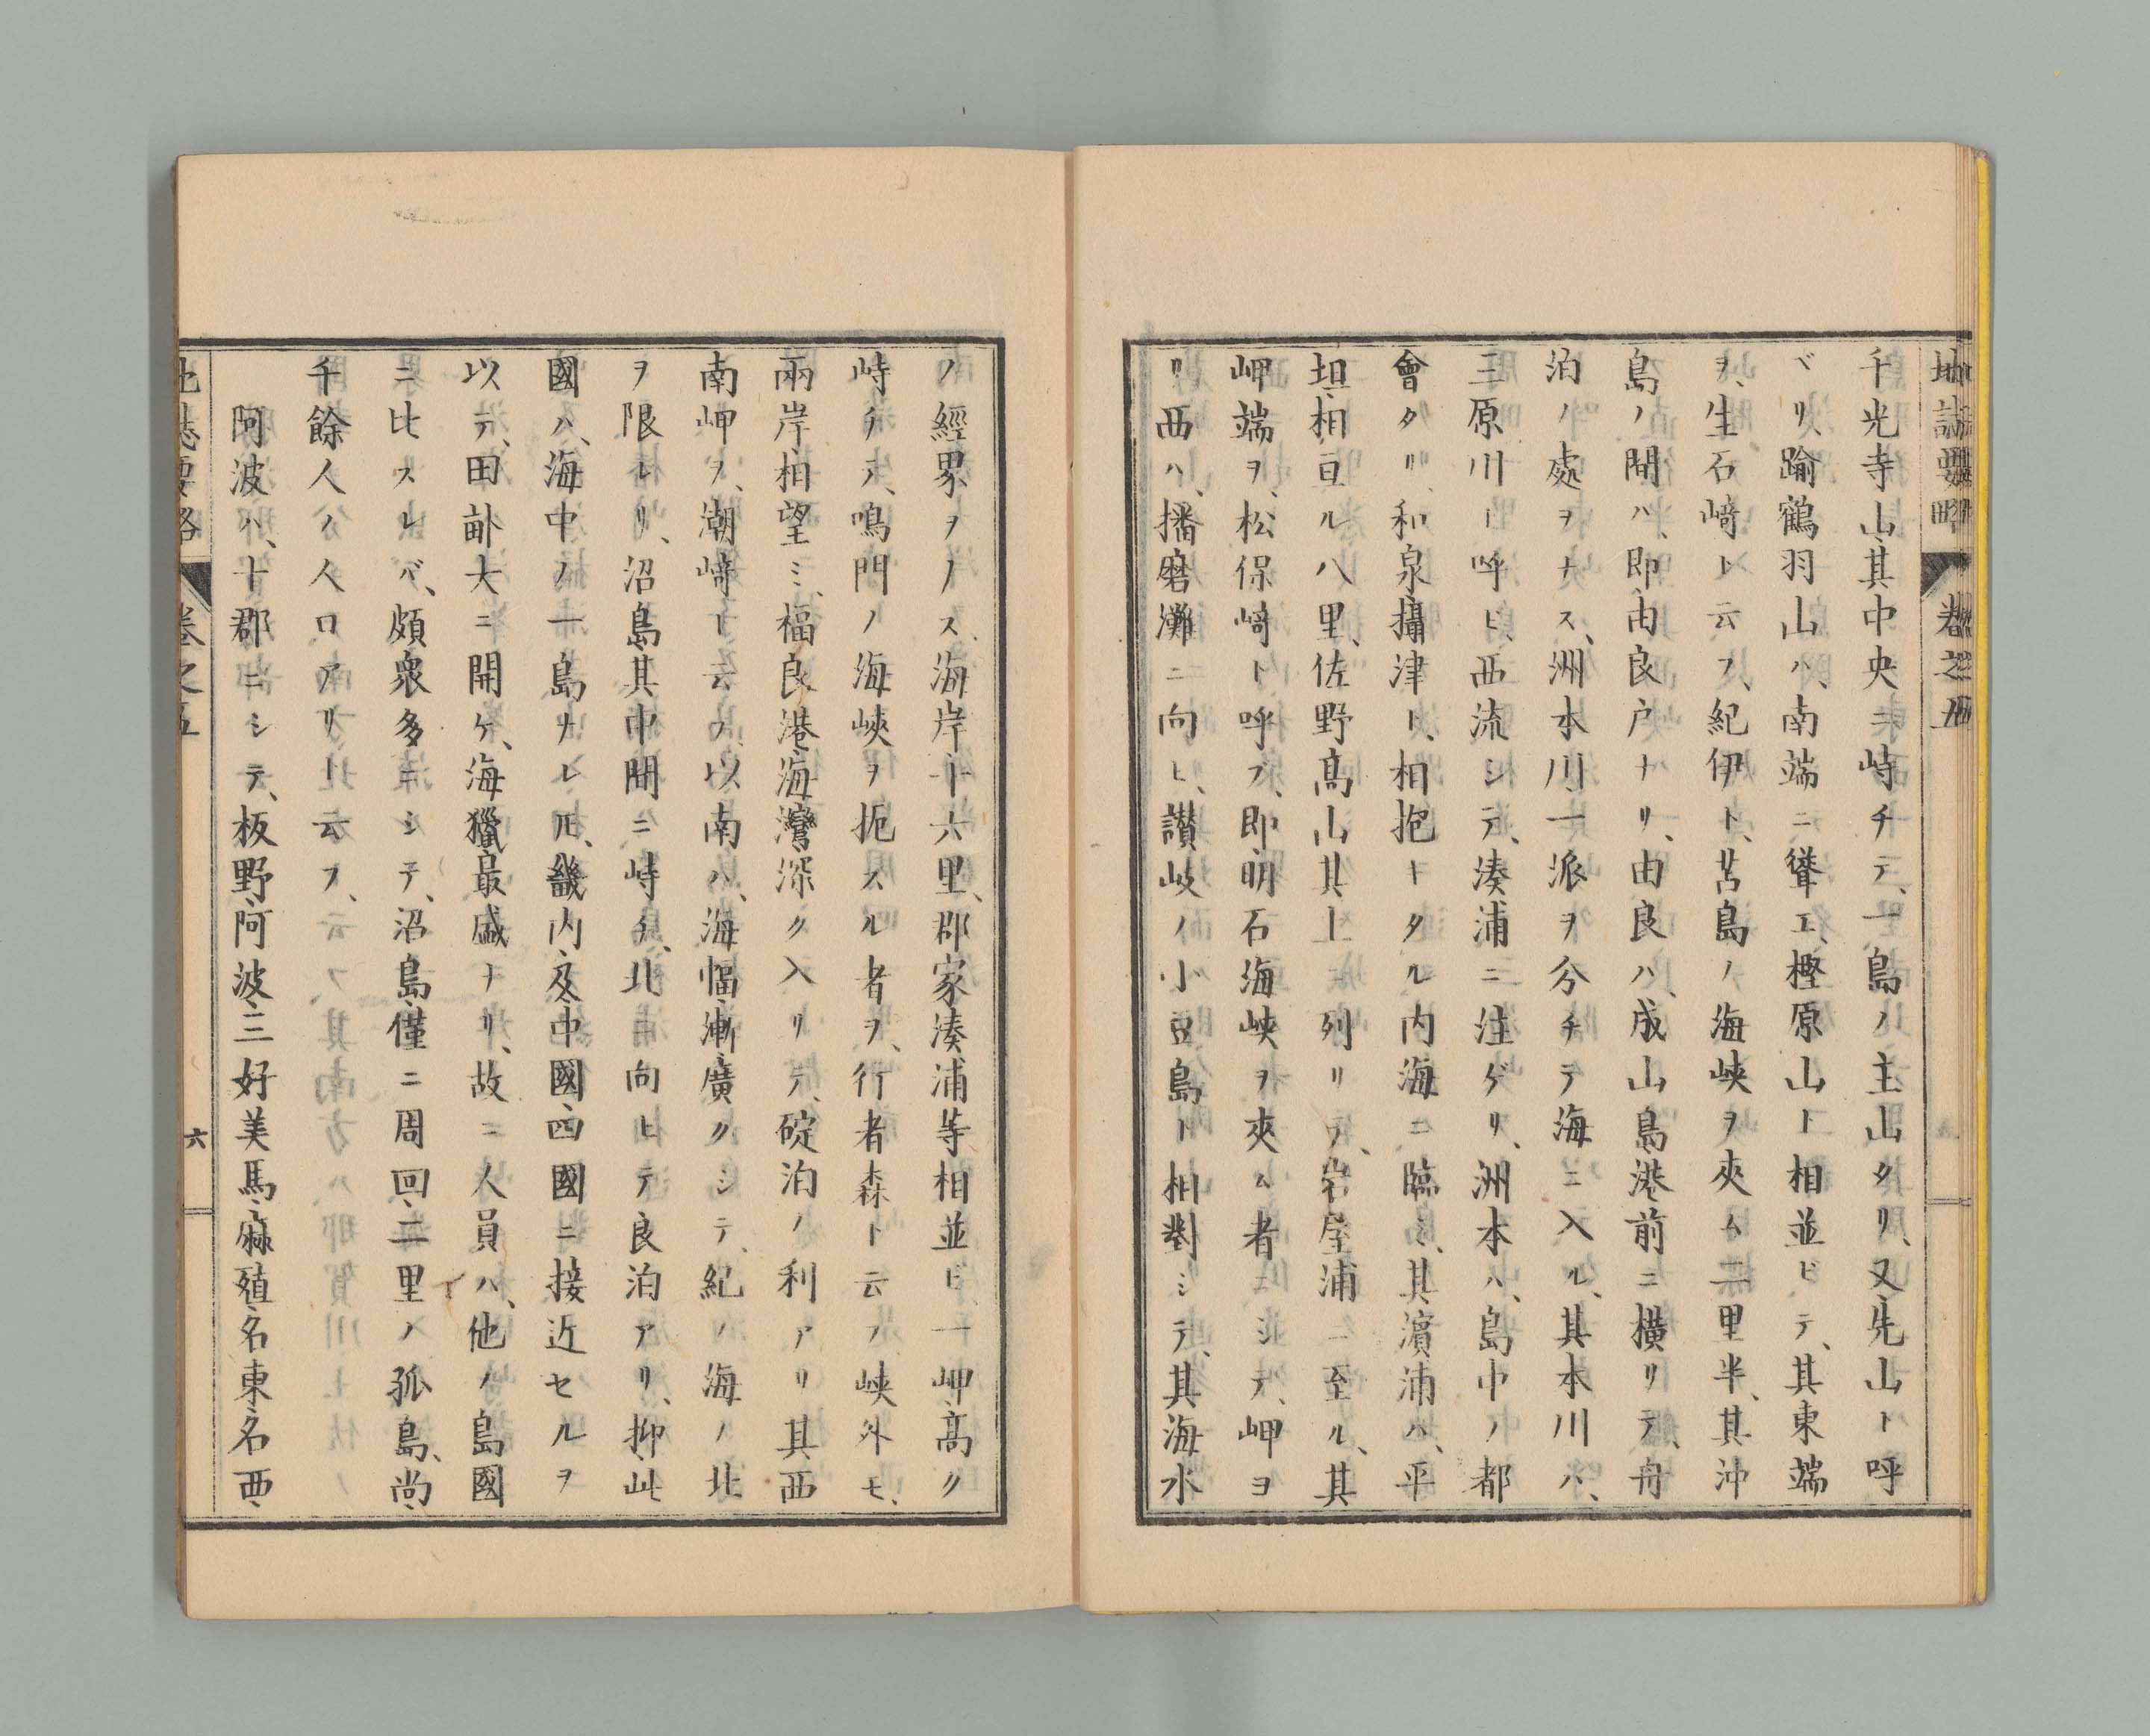 地誌要略 卷之五
千光寺山、其中央ニ峙チテ、一島ノ主山タリ、又先山ト呼
ベリ、踰鶴羽山ハ、南端ニ聳エ、樫原山ト相並ビテ、其東端
ヲ、生石﨑ト云フ、紀伊ト、苫島ノ海峽ヲ夾ム二里半、其沖
島ノ間ハ、即由良戸ナリ、由良ハ、成山島港前ニ横リテ、舟
泊ノ處ヲナス、洲本川、一派ヲ分チテ海ニ入ル、其本川ハ、
三原川ト呼ビ、西流シテ、湊浦ニ注ゲリ、洲本ハ、島中ノ都
會タリ、和泉攝津ト、相抱キタル内海ニ臨ミ、其濱浦ハ、平
坦、相亘ル八里、佐野髙山其上ニ列リテ、岩屋浦ニ至ル、其
岬端ヲ、松保﨑ト呼ブ、即明石海峽ヲ夾ム者ニシテ、岬ヲ
リ西ハ、播磨灘ニ向ヒ、讃岐ノ小豆島ト相對シテ、其海水
ノ經界ヲノス、海岸十六里、郡家湊浦等相並ビ、一岬髙ク
峙チテ、鳴門ノ海峽ヲ扼スル者ヲ、行者森ト云フ、峽外モ、
兩岸相望ミ、福良港、海灣深ク入リテ、碇泊ノ利アリ、其西
南岬ヲ、潮﨑ト云フ、以南ハ、海幅漸廣クシテ、紀ノ海ノ北
ヲ限レリ、沼島其中間ニ峙チ、北ニ向ヒテ良泊アリ、抑此
國ハ、海中ノ一島ナレ𪜈、畿内及中國四國ニ接近セルヲ
以テ、田畝大ニ開ケ、海獵最盛ナリ、故ニ人員ハ、他ノ島國
ニ比スレバ、頗衆多ニシテ、沼島、僅ニ周回二里ノ孤島、尚
千餘人ノ人口アリト云フ、
阿波ハ、十郡ニシテ、板野、阿波、三好、美馬、麻殖、名東、名西、
地誌要略 卷之五 六